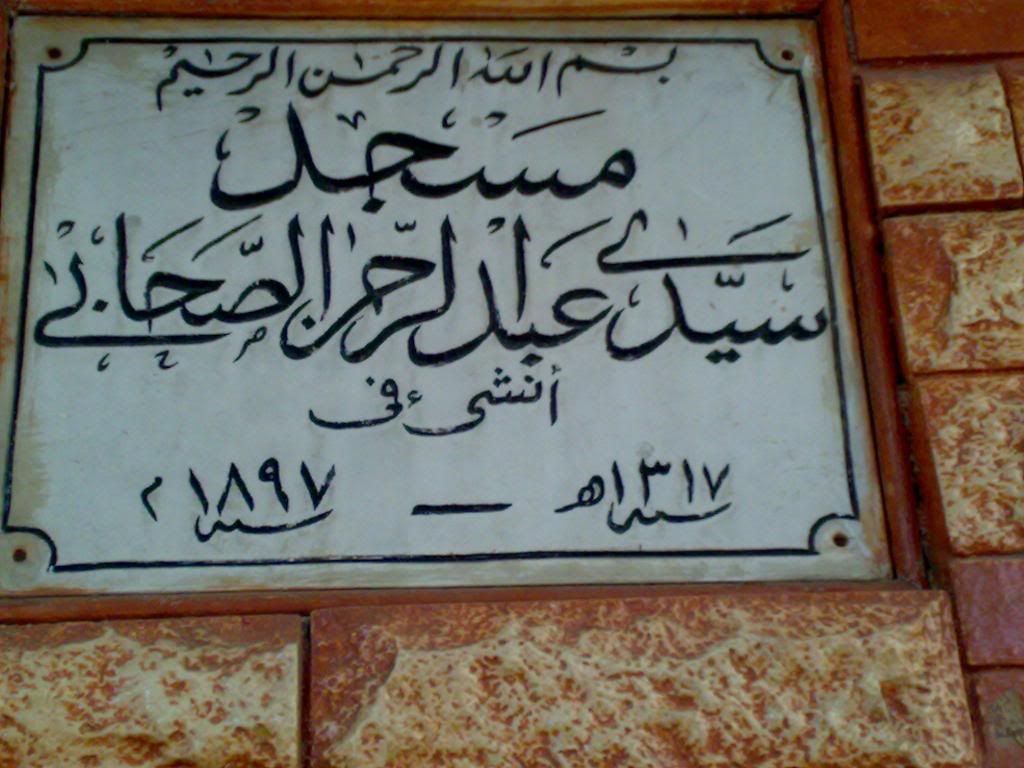 بسم الله الرحمن الرحيم
مسجد
سيدي عبد الرحمن الصحابي
أنشىء فى
سنة ١٣١٧ هـ — سنة ١٨٩٧ م